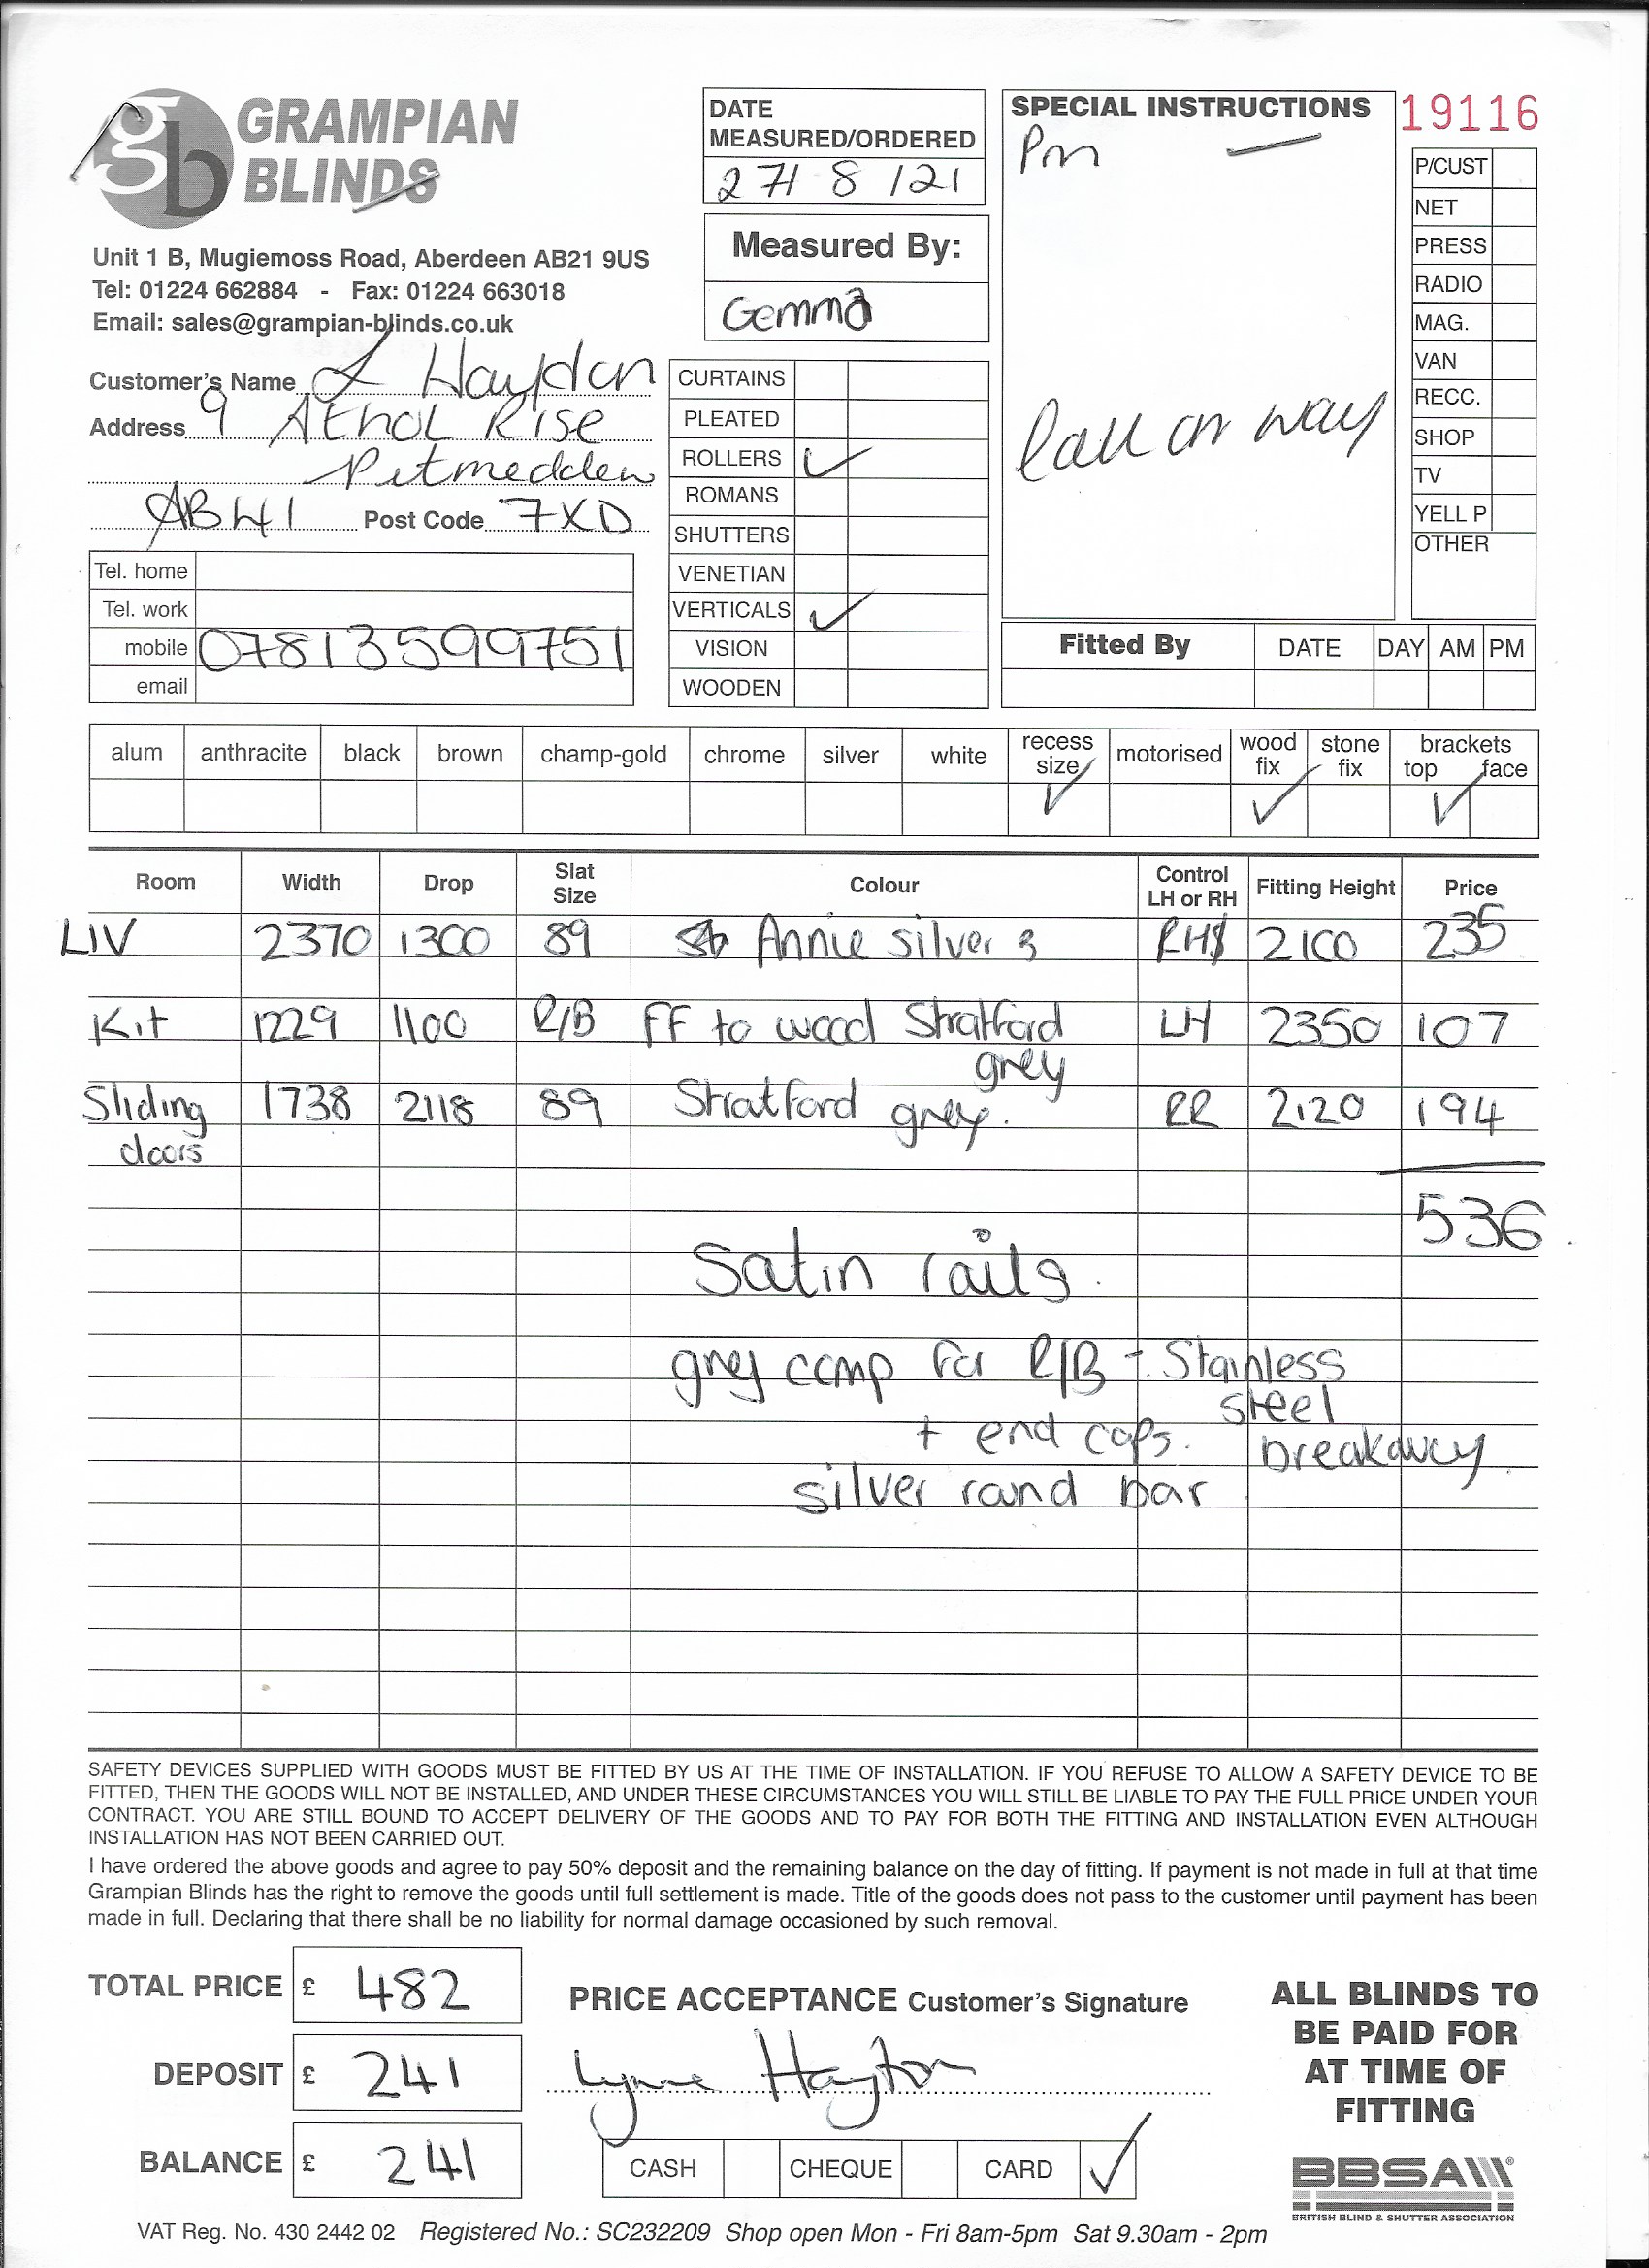 gb GRAMPIAN BLINDS
Unit 1 B, Mugiemoss Road, Aberdeen AB21 9US
Tel: 01224 662884 - Fax: 01224 663018
Email: sales@grampian-blinds.co.uk
Customer's Name L Haydon
Address 9 Athol Rise
Pitmedden
AB41 Post Code 7XD
Tel. home
Tel. work
mobile 07813599751
email
DATE
MEASURED/ORDERED
27/8/21
Measured By:
Gemma
CURTAINS
PLEATED
ROLLERS ✓
ROMANS
SHUTTERS
VENETIAN
VERTICALS ✓
VISION
WOODEN
SPECIAL INSTRUCTIONS
Pm
Call on way
19116
P/CUST
NET
PRESS
RADIO
MAG.
VAN
RECC.
SHOP
TV
YELL P
OTHER
Fitted By DATE DAY AM PM
alum anthracite black brown champ-gold chrome silver white recess size ✓ motorised wood fix ✓ stone fix brackets top ✓ face
Room Width Drop Slat Size Colour Control LH or RH Fitting Height Price
LIV 2370 1300 89 Annie silver 3 2100 235
Kit 1229 1100 R/B FF to wood Stratford grey LH 2350 107
Sliding doors 1738 2118 89 Stratford grey. RR 2120 194
536
Satin rails.
grey comp for R/B - Stainless
steel
+ end caps. breakaway
silver round bar
SAFETY DEVICES SUPPLIED WITH GOODS MUST BE FITTED BY US AT THE TIME OF INSTALLATION. IF YOU REFUSE TO ALLOW A SAFETY DEVICE TO BE
FITTED, THEN THE GOODS WILL NOT BE INSTALLED, AND UNDER THESE CIRCUMSTANCES YOU WILL STILL BE LIABLE TO PAY THE FULL PRICE UNDER YOUR
CONTRACT. YOU ARE STILL BOUND TO ACCEPT DELIVERY OF THE GOODS AND TO PAY FOR BOTH THE FITTING AND INSTALLATION EVEN ALTHOUGH
INSTALLATION HAS NOT BEEN CARRIED OUT.
I have ordered the above goods and agree to pay 50% deposit and the remaining balance on the day of fitting. If payment is not made in full at that time
Grampian Blinds has the right to remove the goods until full settlement is made. Title of the goods does not pass to the customer until payment has been
made in full. Declaring that there shall be no liability for normal damage occasioned by such removal.
TOTAL PRICE £ 482
DEPOSIT £ 241
BALANCE £ 241
PRICE ACCEPTANCE Customer's Signature
Lynne Hayton
CASH CHEQUE CARD ✓
ALL BLINDS TO
BE PAID FOR
AT TIME OF
FITTING
BBSA
BRITISH BLIND & SHUTTER ASSOCIATION
VAT Reg. No. 430 2442 02 Registered No.: SC232209 Shop open Mon - Fri 8am-5pm Sat 9.30am - 2pm